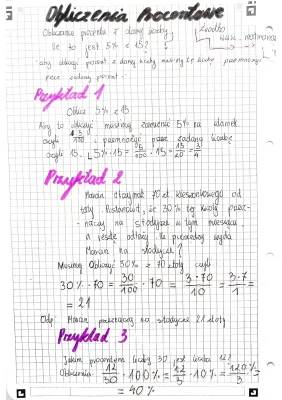 Obliczenia Procentowe
Obliczanie procentu z danej liczby
Ile to jest 5% z 15?
aby obliczyć procent z danej liczby musimy tę liczbę pomnożyć
przez zadany procent.
Przykład 1
Oblicz 5% z 15
Aby to obliczyć musimy zamienić 5% na ułamek
czyli 5/100 i pomnożyć przez zadaną liczbę
czyli 15. 5% · 15 = 5/100 · 15 = 15/20 = 3/4
Przykład 2
Marcin otrzymał 70 zł kieszonkowego od
taty. Postanowił, że 30% tej kwoty przez-
naczy na słodycze w tym miesiącu
a resztę odłoży. Ile pieniędzy wyda
Marcin na słodycze?
Musimy Obliczyć 30% z 70 złoty czyli
30% · 70 = 30/100 · 70 = 3·70/10 = 3·7/1 =
= 21
Odp. Marcin przeznaczy na słodycze 21 złoty
Przykład 3
Jakim procentem liczby 30 jest liczba 12?
Obliczenia: 12/30 · 100% = 12/3 · 10% = 120%/3 =
= 40%